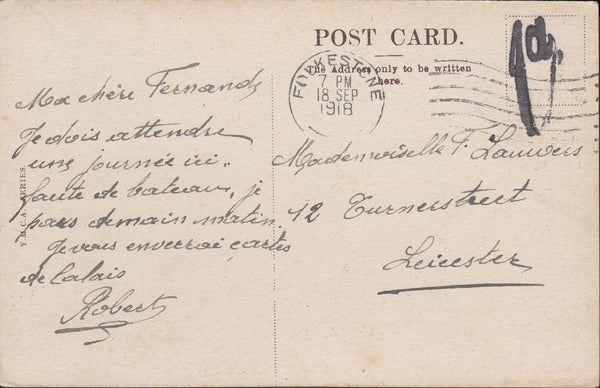 POST CARD.
The Address only to be written
here.
FOLKESTONE
7 PM
18 SEP
1918
1d.
Ma chère Fernande
Je dois attendre
une journée ici.
faute de bateau, je
pars demain matin.
Je vous enverrai cartes
de Calais
Robert
Mademoiselle F. Lauwers
12 Turnerstreet
Leicester
Y.M.C.A. SERIES.